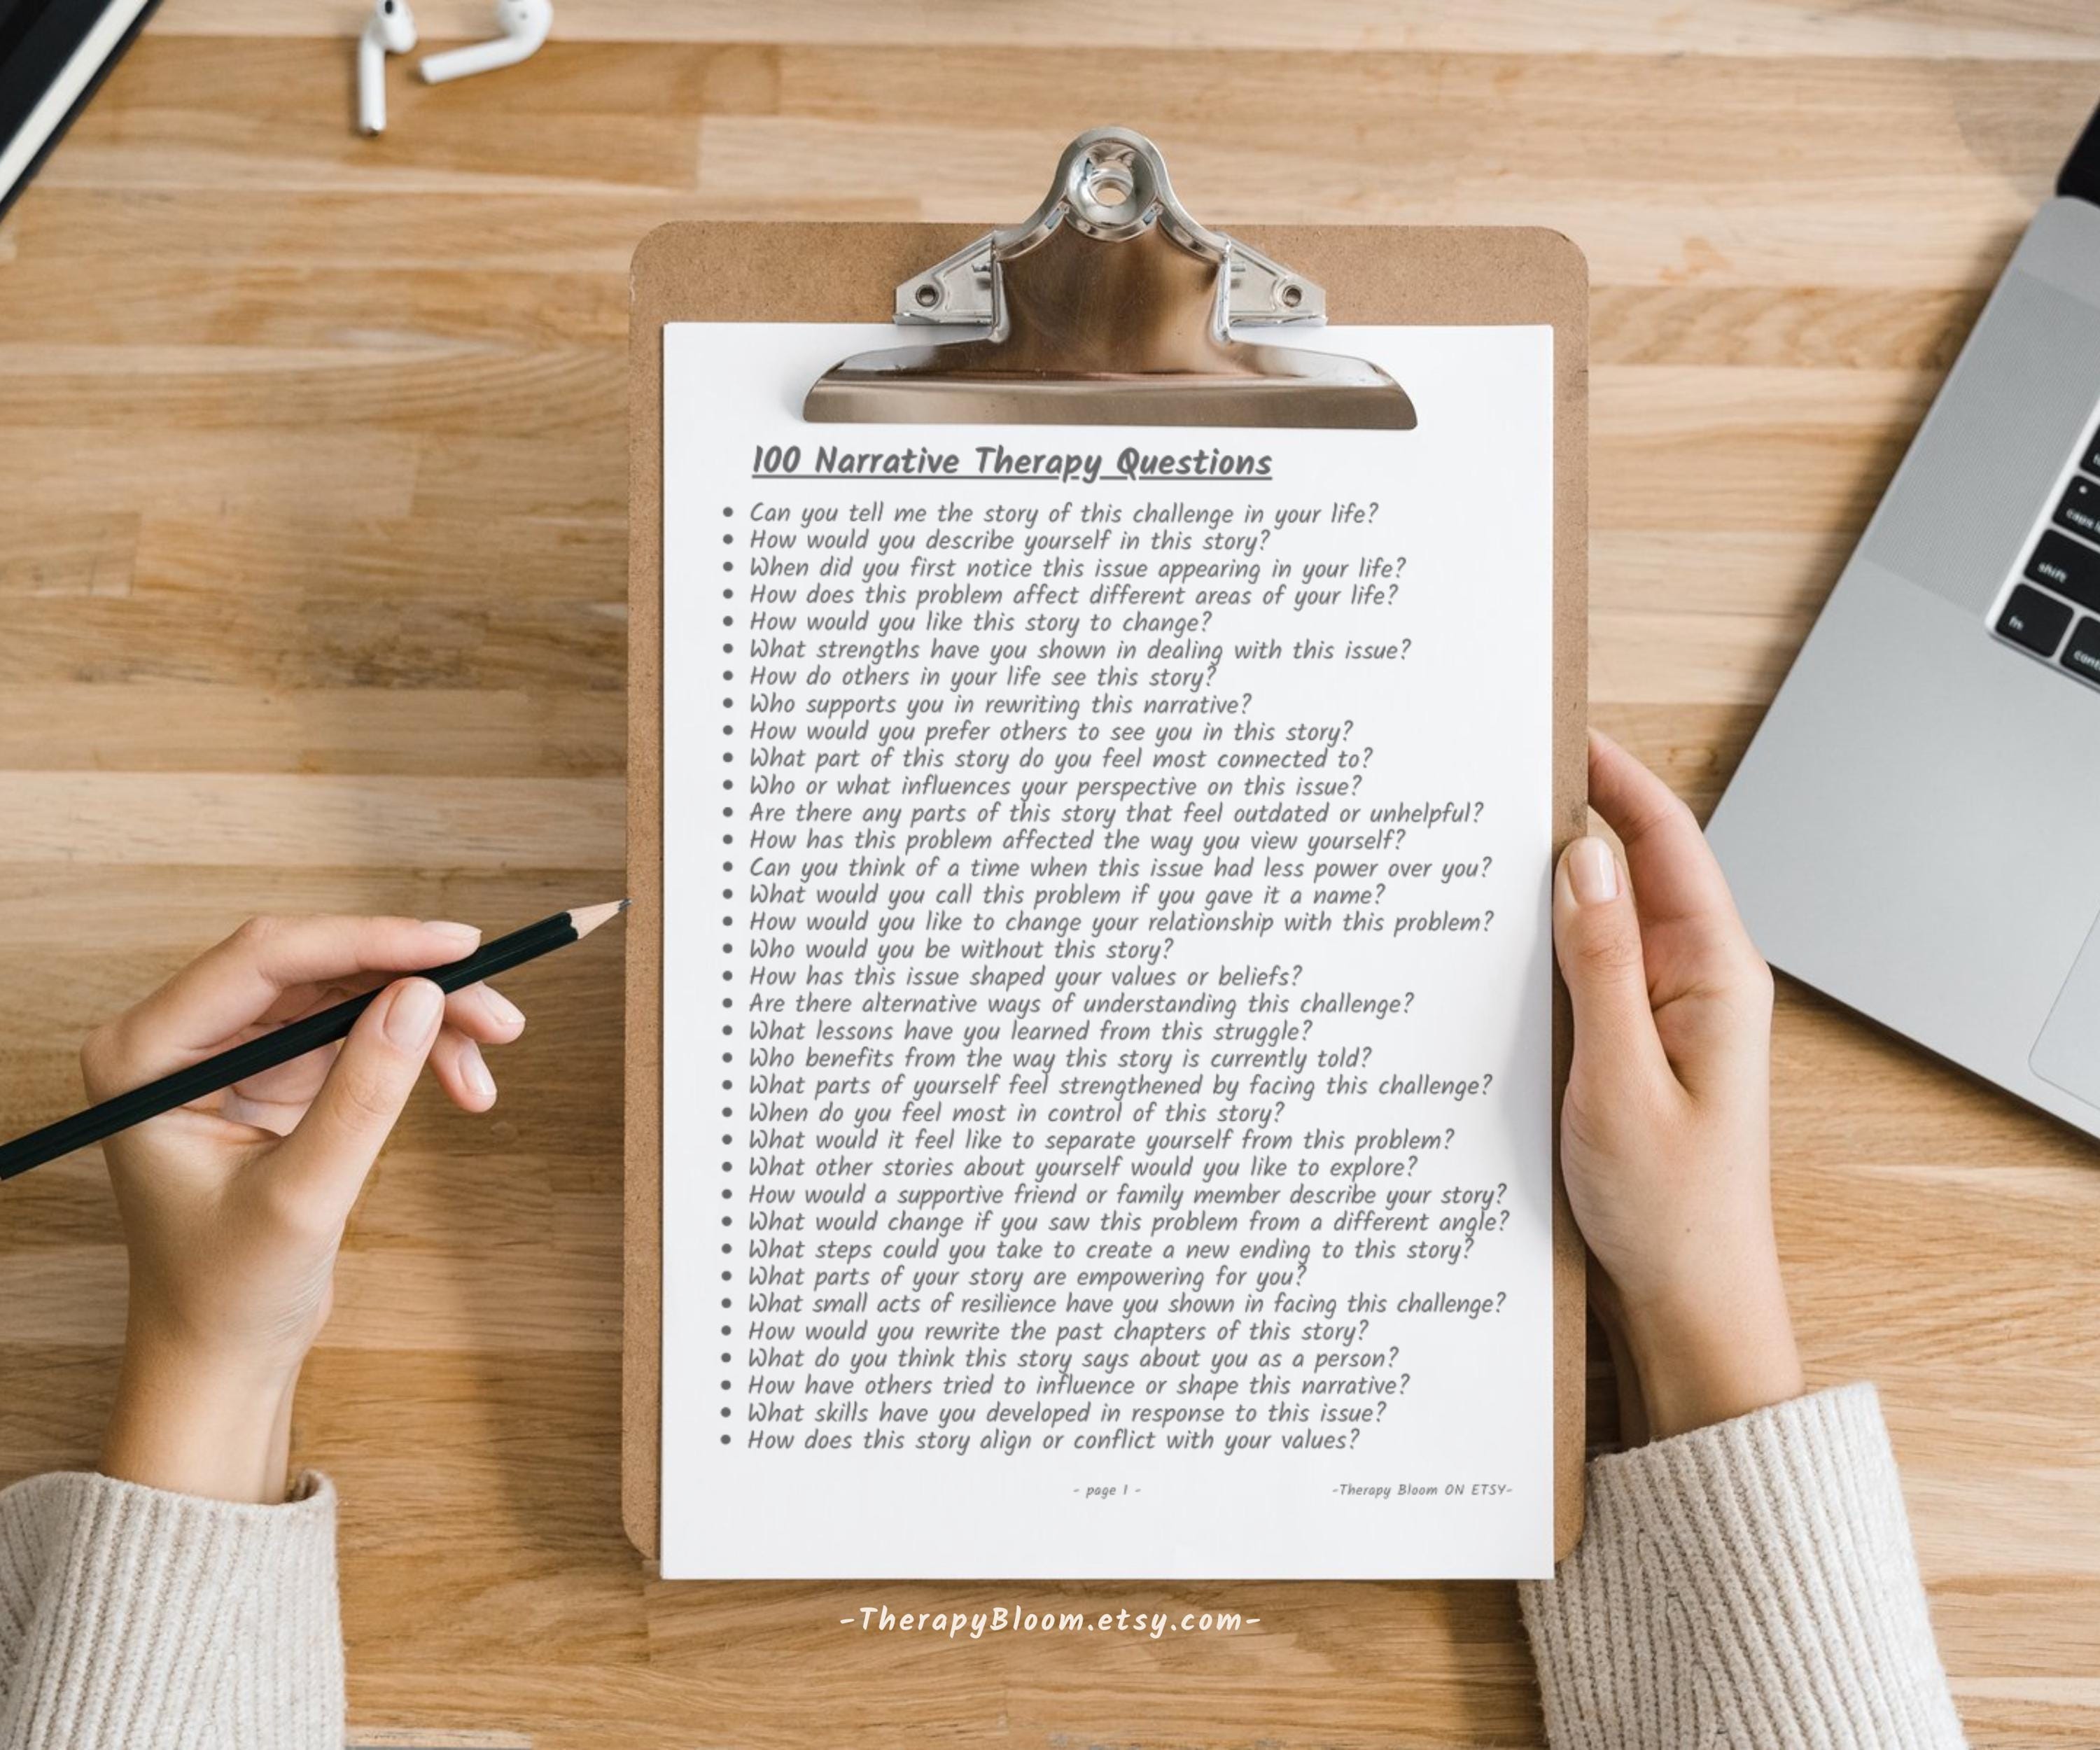 100 Narrative Therapy Questions
• Can you tell me the story of this challenge in your life?
• How would you describe yourself in this story?
• When did you first notice this issue appearing in your life?
• How does this problem affect different areas of your life?
• How would you like this story to change?
• What strengths have you shown in dealing with this issue?
• How do others in your life see this story?
• Who supports you in rewriting this narrative?
• How would you prefer others to see you in this story?
• What part of this story do you feel most connected to?
• Who or what influences your perspective on this issue?
• Are there any parts of this story that feel outdated or unhelpful?
• How has this problem affected the way you view yourself?
• Can you think of a time when this issue had less power over you?
• What would you call this problem if you gave it a name?
• How would you like to change your relationship with this problem?
• Who would you be without this story?
• How has this issue shaped your values or beliefs?
• Are there alternative ways of understanding this challenge?
• What lessons have you learned from this struggle?
• Who benefits from the way this story is currently told?
• What parts of yourself feel strengthened by facing this challenge?
• When do you feel most in control of this story?
• What would it feel like to separate yourself from this problem?
• What other stories about yourself would you like to explore?
• How would a supportive friend or family member describe your story?
• What would change if you saw this problem from a different angle?
• What steps could you take to create a new ending to this story?
• What parts of your story are empowering for you?
• What small acts of resilience have you shown in facing this challenge?
• How would you rewrite the past chapters of this story?
• What do you think this story says about you as a person?
• How have others tried to influence or shape this narrative?
• What skills have you developed in response to this issue?
• How does this story align or conflict with your values?
- page 1 -
-Therapy Bloom ON ETSY-
-TherapyBloom.etsy.com-
shift
fn